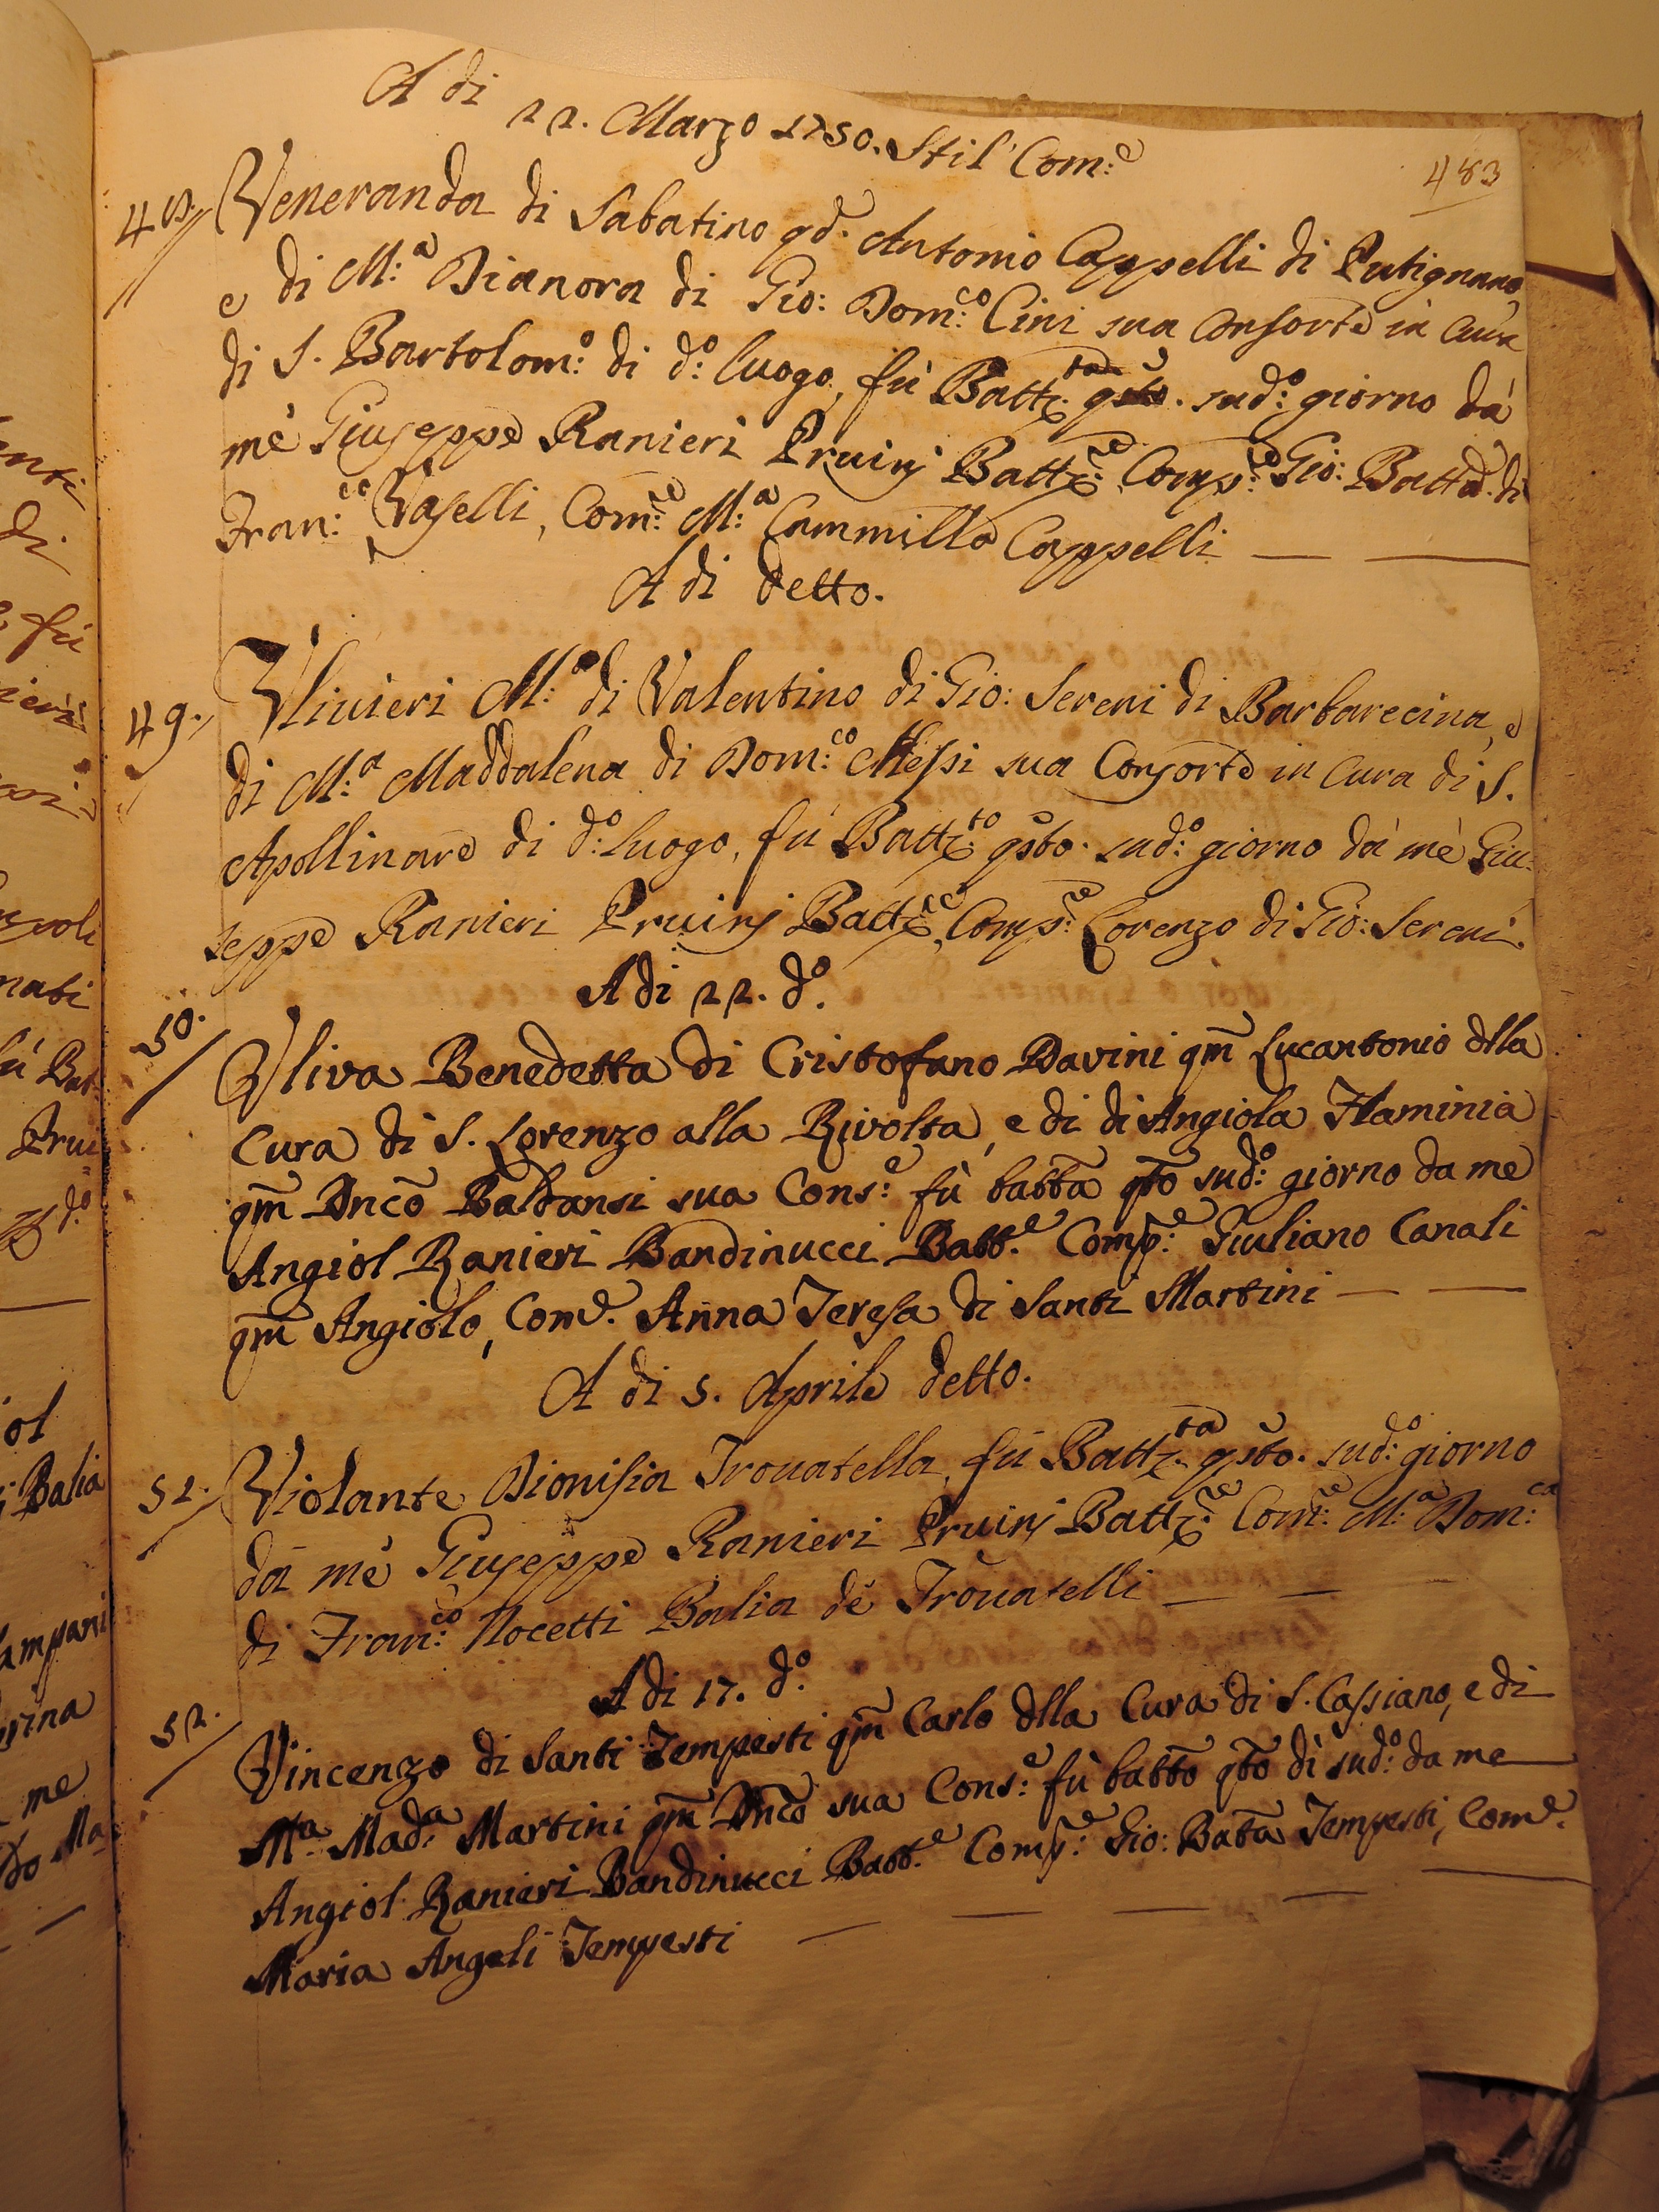 A di 22. Marzo 1750. Stil' Com:e
483
48. Veneranda di Sabatino qd. Antonio Cappelli di Putignano,
e di M:a Dianora di Gio: Dom:co Cini sua Consorte in Cura
di S. Bartolom:o di d:o luogo, fù Battz:ta qsto. sud:o giorno dà
mè Giuseppe Ranieri Pruinj Battz:re Comp:re Gio: Batta. di
Fran:co Vaselli, Com:re M:a Cammilla Cappelli
A di detto.
49. Ulivieri M:a di Valentino di Gio: Sereni di Barbarecina, e
di M:a Maddalena di Dom:co Messi sua Consorte in Cura di S.
Apollinare di d:o luogo, fù Battz:to qsto. sud:o giorno dà mè Giu-
seppe Ranieri Pruinj Battz:re, Comp:re Lorenzo di Gio: Sereni.
A di 22. d:o
50. Uliva Benedetta di Cristofano Davini qm Lucantonio dlla
Cura di S. Lorenzo alla Rivolta, e di di Angiola Flaminia
qm Dnco Baldansi sua Cons:e fù batta qto sud:o giorno da me
Angiol Ranieri Bandinucci Batt.e Comp:e Giuliano Canali
qm Angiolo, Come. Anna Teresa di Santi Martini
A di 5. Aprile detto.
51. Violante Dionisia Trouatella, fù Battz:ta qsto. sud:o giorno
dà mè Giuseppe Ranieri Pruinj Battz:re Com:re M:a Dom:ca
di Fran:co Nocetti Balia de Trouatelli
A di 17. d:o
52. Vincenzo di Santi Tempesti qm Carlo dlla Cura di S. Cassiano, e di
Ma Mad:a Martini qm Dnco sua Cons:e fù batto qto dì sud:o da me
Angiol Ranieri Bandinucci Batt.e Comp:e Gio: Batta Tempesti, Come.
Maria Angeli Tempesti